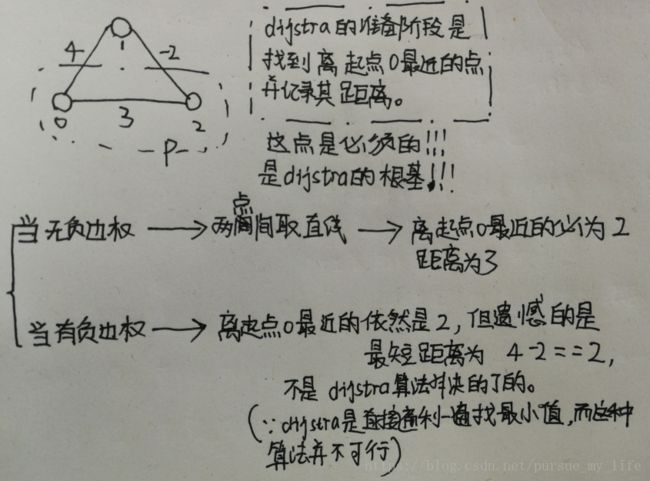 4
1
-2
0
3
2
-P-
dijstra的准备阶段是
找到离起点0最近的点
并记录其距离。
这点是必须的!!!
是dijstra的根基!!!
当无负边权 → 两点间取直线 → 离起点0最近的必为2
距离为3
当有负边权 → 离起点0最近的依然是2,但遗憾的是
最短距离为 4-2==2,
不是 dijstra算法解决的了的。
(∵dijstra是直接遍利一遍找最小值,而这种
算法并不可行)
https://blog.csdn.net/pursue_my_life